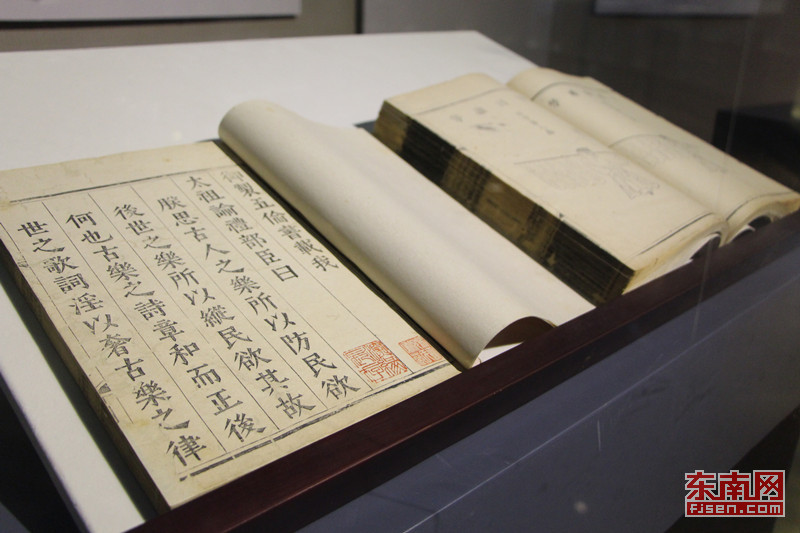 御製五倫書載我
太祖論禮部臣曰
朕思古人之樂所以防民欲
後世之樂所以縱民欲其故
何也古樂之詩章和而正後
世之歌詞淫以奢古樂之律
东南网
FJSEN.COM